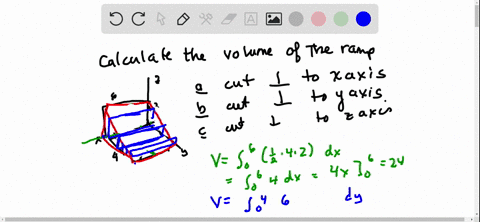 Calculate the volume of The ramp
a cut ⊥ to x axis
b cut ⊥ to y axis.
c cut ⊥ to z axis.
z
6
2
x
4
y
V= ∫₀⁶ (½·4·2) dx
= ∫₀⁶ 4 dx = 4x]₀⁶ = 24
V= ∫₀⁴ 6 dy
A